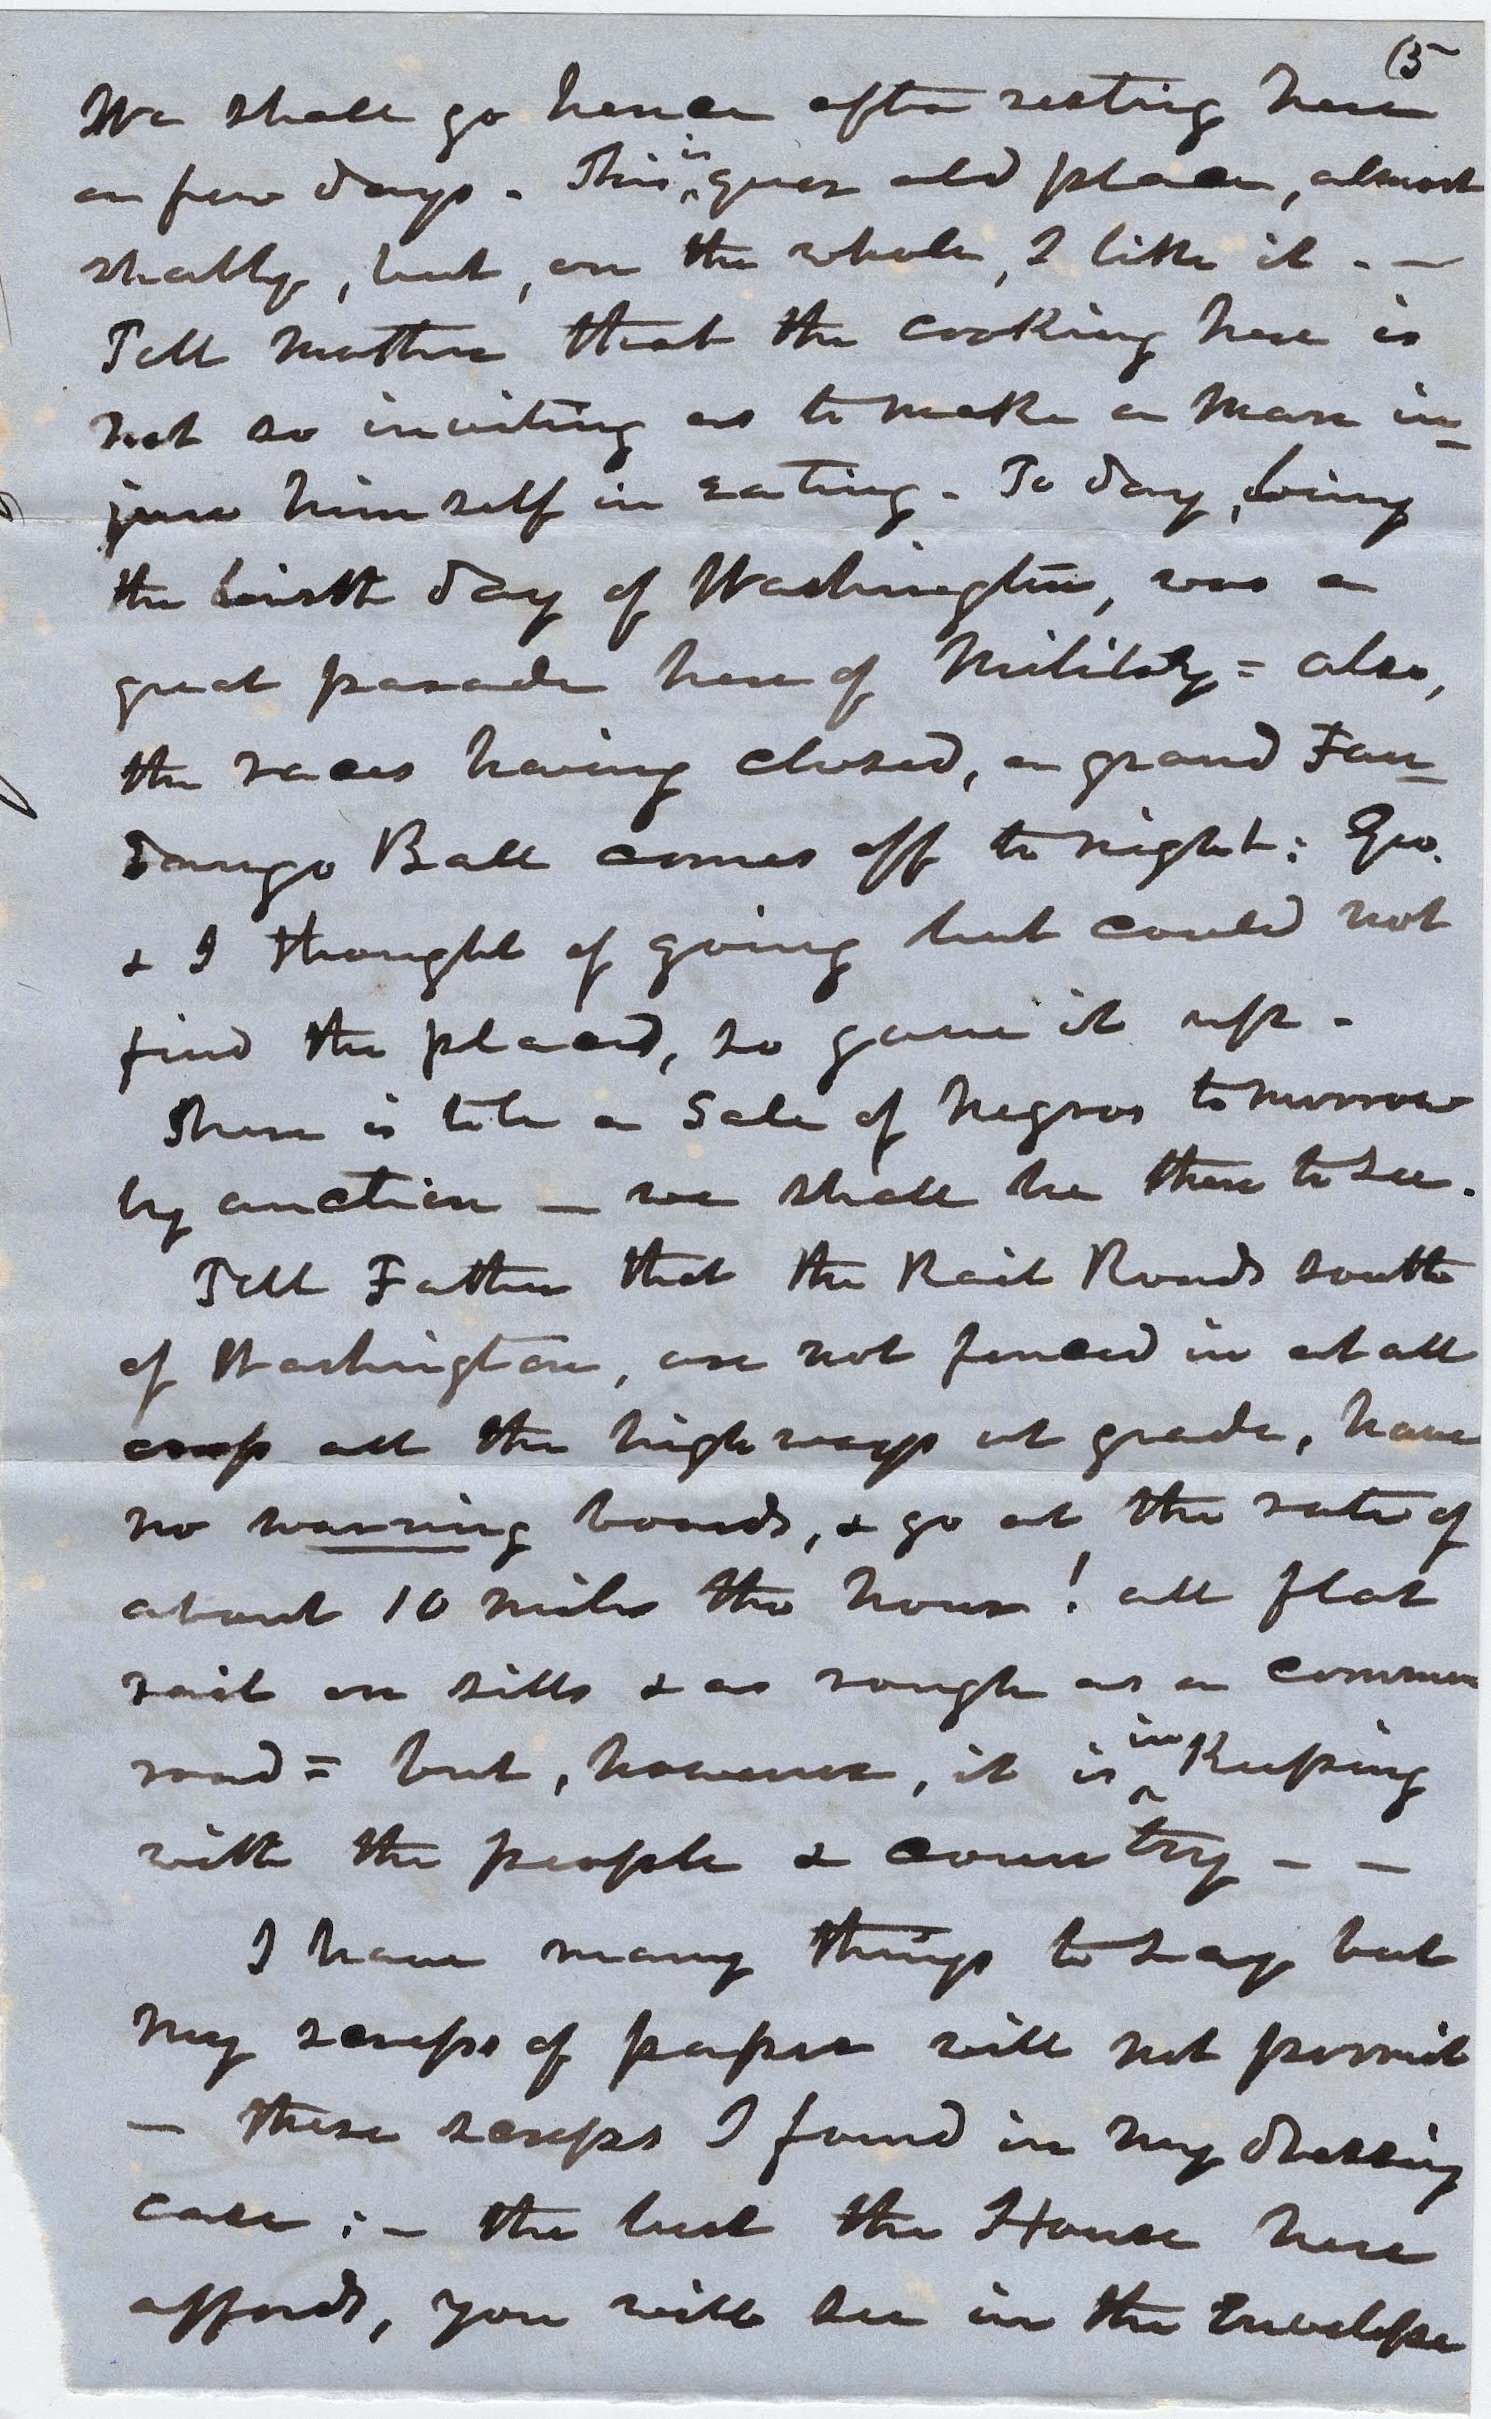 (5
We shall go hence after resting here
a few days. This is queer old place, almost
shabby, but, on the whole, I like it. —
Tell Mother that the cooking here is
not so inviting as to make a man in-
jure himself in eating. To day, being
the birth day of Washington, was a
great parade here of Military = also,
the races having closed, a grand Fan-
dango Ball comes off to night: Geo.
& I thought of going but could not
find the place, so gave it up.
There is to be a Sale of Negros tomorrow
by auction — we shall be there to see.
Tell Father that the Rail Roads south
of Washington, are not fenced in at all
cross all the highways at grade, have
no warning boards, & go at the rate of
about 10 miles the hour! all flat
rail on sills & as rough as a common
road = but, however, it is in keeping
with the people & country — —
I have many things to say but
my scraps of paper will not permit
— these scraps I found in my dressing
case: — the best the House here
affords, you will see in the Envelope